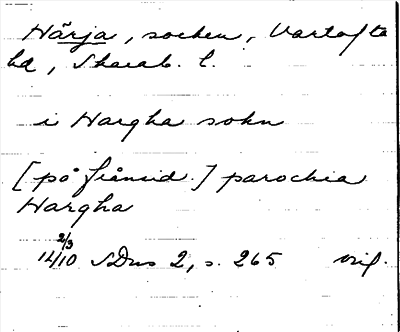 Härja, socken, Vartofta
hd, Skarab. l.
i Hargha sokn
[på frånsid.] parochia
Hargha
2/3
1410 SDns 2, s. 265 orig.